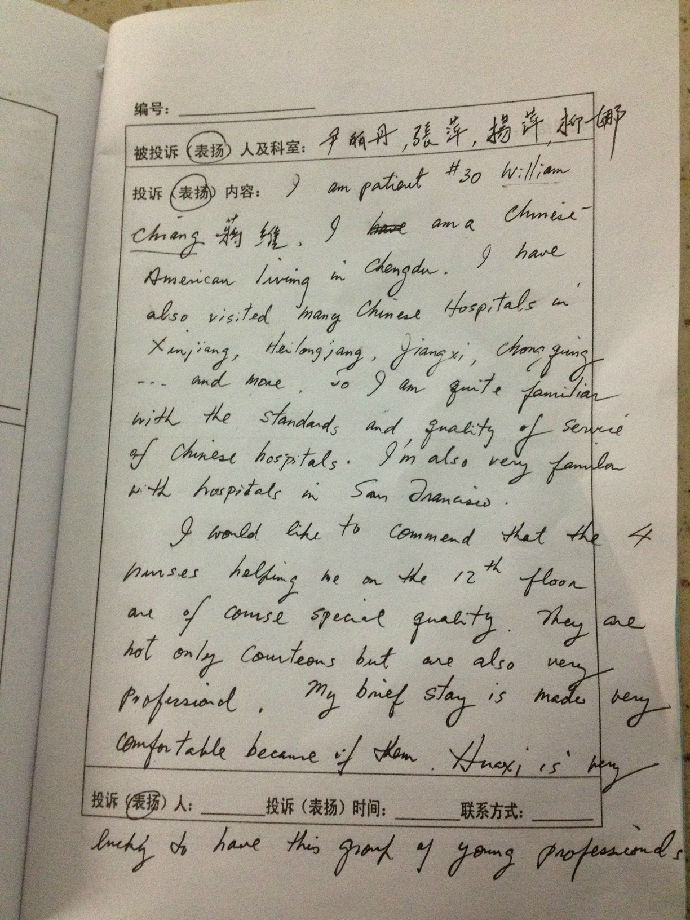 编号：
被投诉（表扬）人及科室：尹丹，張萍，楊萍，柳娜
投诉（表扬）内容： I am patient #30 William
Chiang 蒋維. I have am a Chinese-
American living in Chengdu. I have
also visited many Chinese Hospitals in
Xinjiang, Heilongjang, Jiangxi, Chongqing
... and more. So I am quite familiar
with the standards and quality of service
of Chinese hospitals. I'm also very familar
with hospitals in San Francisco.
I would like to commend that the 4
nurses helping me on the 12th floor
are of course special quality. They are
not only courteous but are also very
professional. My brief stay is made very
comfortable because of them. Huaxi is very
投诉（表扬）人： 投诉（表扬）时间： 联系方式：
lucky to have this group of young professionals.